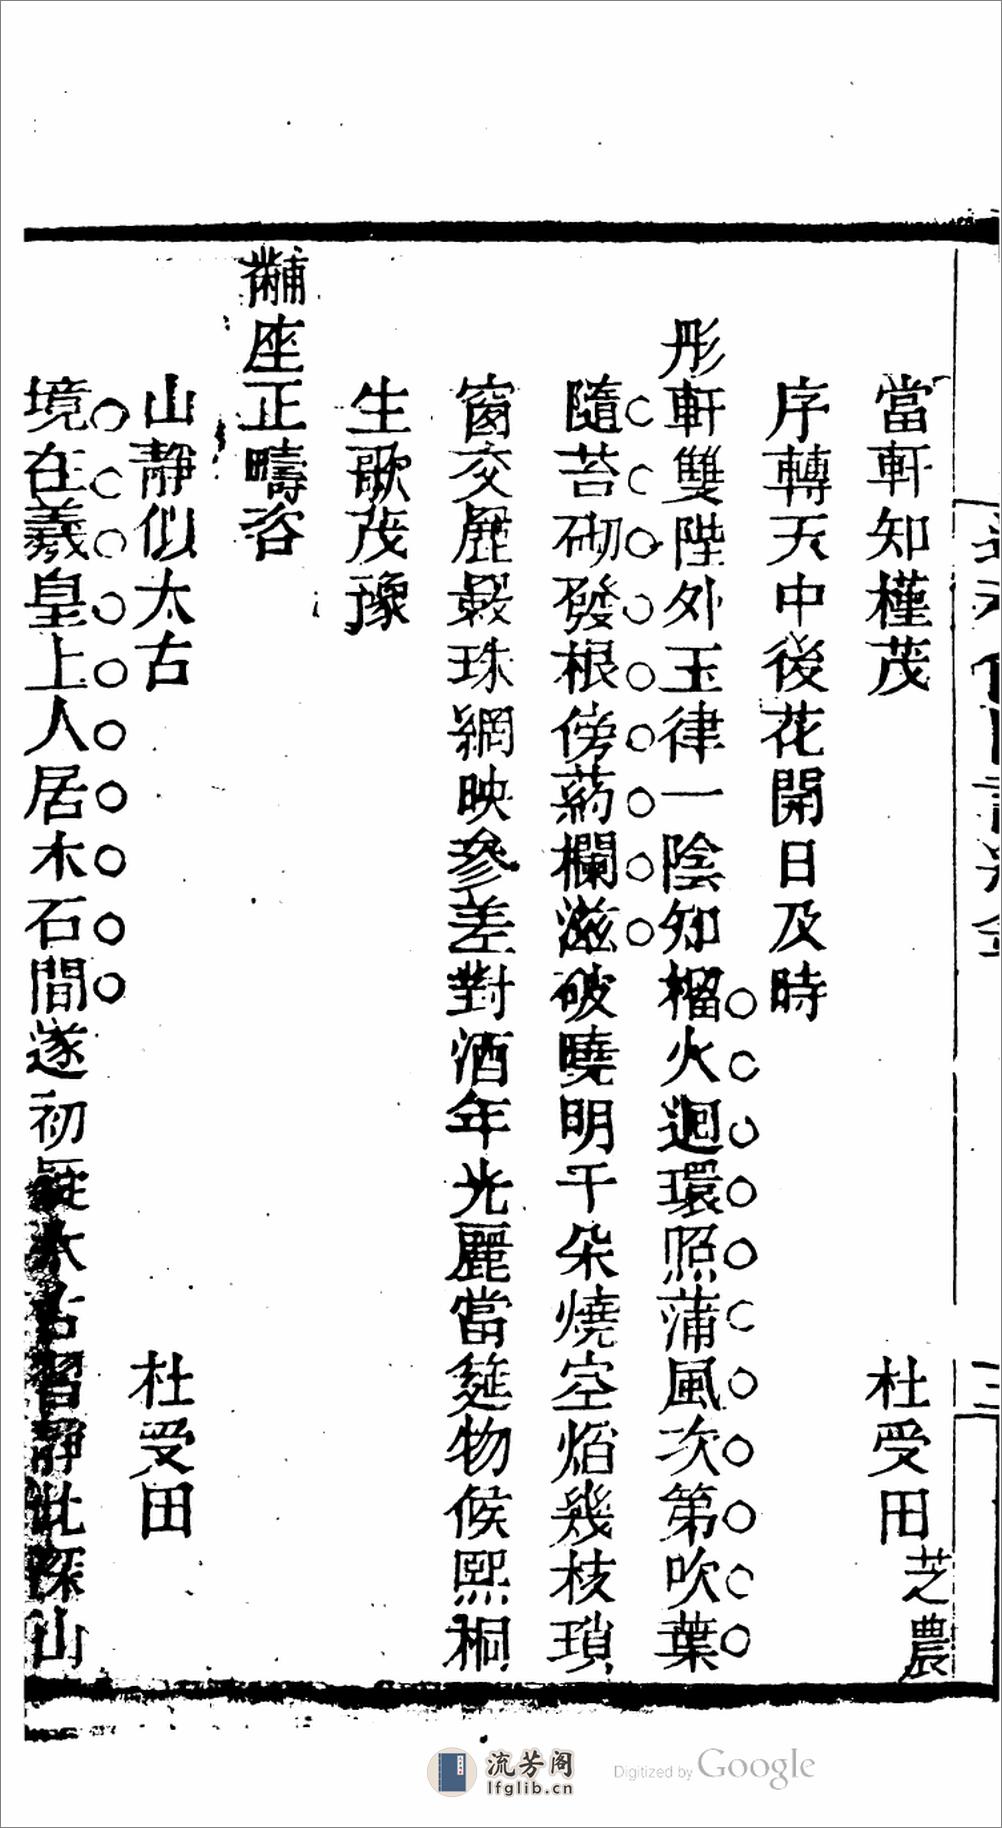 當軒知槿茂
杜受田芝農
序轉天中後花開日及時
彤軒雙陛外玉律一陰知榴火迴環照蒲風次第吹葉
隨苔砌發根傍葯欄滋破曉明千朵燒空焰幾枝瑣
窗交麗縠珠網映參差對酒年光麗當筵物候熙桐
生歌茂豫
黼座正疇咨
山靜似太古
杜受田
境在羲皇上人居木石間遂初疑太古習靜此深山
三
流芳阁
lfglib.cn
Digitized by Google